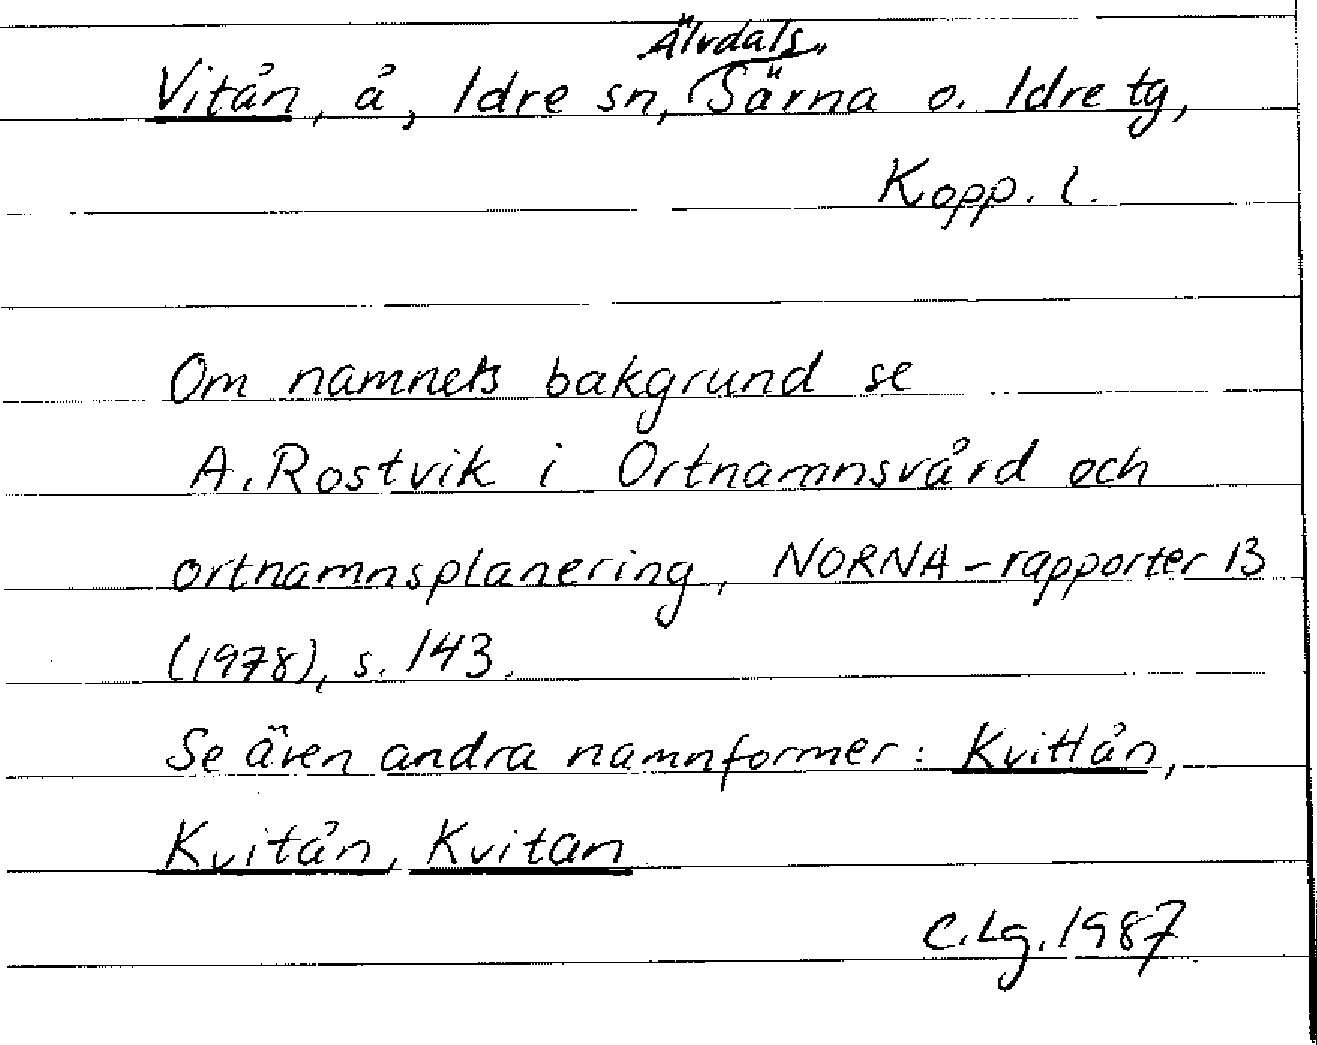 Älvdals,,
Vitån, å, Idre sn, Särna o. Idre tg,
Kopp. l.
Om namnets bakgrund se
A. Rostvik i Ortnamnsvård och
ortnamnsplanering, NORNA-rapporter 13
(1978), s. 143.
Se även andra namnformer: Kvittån,
Kvitån, Kvitan
C.Lg. 1987